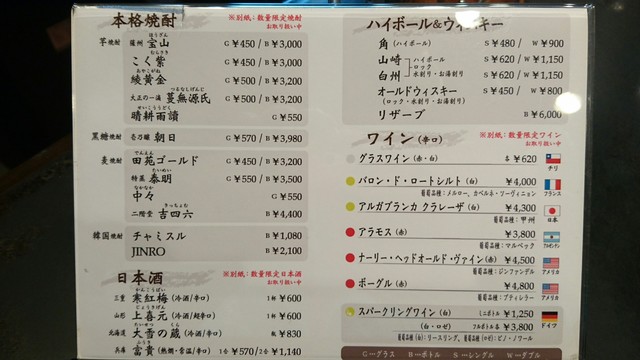 本格焼酎
※別紙:数量限定焼酎
お取り扱い中
芋焼酎 薩州 宝山 G ¥450 / B ¥3,000
こく紫 G ¥450 / B ¥3,000
綾黄金 G ¥500 / B ¥3,200
大正の一滴 蔓無源氏 G ¥500 / B ¥3,200
晴耕雨讀 G ¥550
黒糖焼酎 壱乃醸 朝日 G ¥570 / B ¥3,980
麦焼酎 田苑ゴールド G ¥450 / B ¥3,200
特蒸 泰明 G ¥550 / B ¥3,500
中々 G ¥550
二階堂 吉四六 B ¥4,400
韓国焼酎 チャミスル B ¥1,080
JINRO B ¥2,100
日本酒
※別紙:数量限定日本酒
お取り扱い中
三重 寒紅梅 (冷酒/辛口) 1杯 ¥600
山形 上喜元 (冷酒/超辛口) 1杯 ¥600
北海道 大雪の蔵 (冷酒/辛口) 瓶 ¥830
兵庫 富貴 (熱燗・常温/中口) 1合 ¥570 / 2合 ¥1,140
ハイボール&ウィスキー
角 (ハイボール) S ¥480 / W ¥900
山崎 S ¥620 / W ¥1,150
ハイボール
ロック
水割り・お湯割り
白州 S ¥620 / W ¥1,150
オールドウィスキー S ¥450 / W ¥800
(ロック・水割り・お湯割り)
リザーブ B ¥6,000
ワイン (辛口)
※別紙:数量限定ワイン
お取り扱い中
グラスワイン (赤・白) 各 ¥620
チリ
バロン・ド・ロートシルト (白) ¥4,000
葡萄品種:メルロー、カベルネ・ソーヴィニョン
フランス
アルガブランカ クラレーザ (白) ¥4,300
葡萄品種:甲州
日本
アラモス (赤) ¥4,000
葡萄品種:マルベック
アルゼンチン
ナーリー・ヘッドオールド・ヴァイン (赤) ¥4,500
葡萄品種:ジンファンデル
アメリカ
ボーグル (赤) ¥4,800
葡萄品種:プティシラー
アメリカ
スパークリングワイン (白) ミニボトル ¥1,250
(白・ロゼ) フルボトル各 ¥3,800
ドイツ
葡萄品種:(白) リースリング、(ロゼ) ピノ・ノワール
G…グラス B…ボトル S…シングル W…ダブル